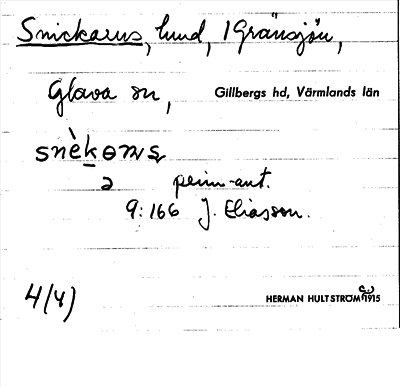 Snickarns, lund, i Gränsjön,
Glava sn, Gillbergs hd, Värmlands län
snèkɵns
a perm-ant.
9:166 J. Eliasson.
4(4) HERMAN HULTSTRÖM 1915